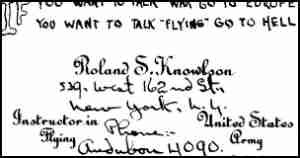 IF YOU WANT TO TALK WAR GO TO EUROPE
YOU WANT TO TALK "FLYING" GO TO HELL
Roland S. Knowlson
529. West 162nd St.
New York. N.Y.
Instructor in Flying
Phone:-
United States Army
Audubon 4090.